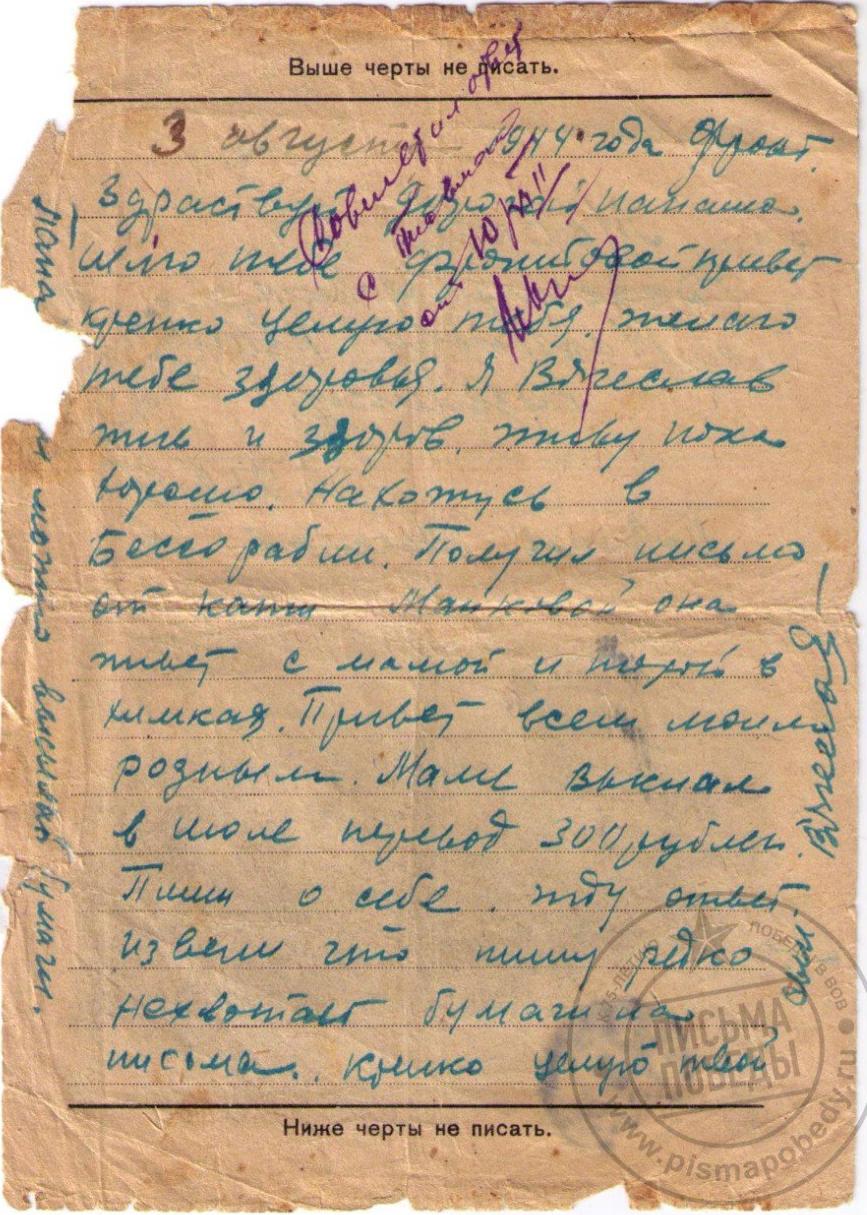 Выше черты не писать.
3 августа 1944 года Фронт.
Здраствуй дорогой папаша.
шлю тебе фронтовой привет
крепко целую тебя, желаю
тебе здоровья. Я Вячеслав
жив и здоров, живу пока
хорошо. Нахожусь в
Бессарабии. Получил письмо
от кати Манковой она
живет с мамой и в
химках. Привет всем моим
родным. Маме выслал
в июле перевод 300 рублей.
Пиши о себе. жду ответ.
извени что пишу редко
нехватает бумаги на
письма. крепко целую твой
сын Вячеслав
Папа можно высылай бумаги.
с
от 10/
Ниже черты не писать.
К 65-ЛЕТИЮ ПОБЕДЫ В ВОВ
ПИСЬМА
ПОБЕДЫ
www.pismapobedy.ru